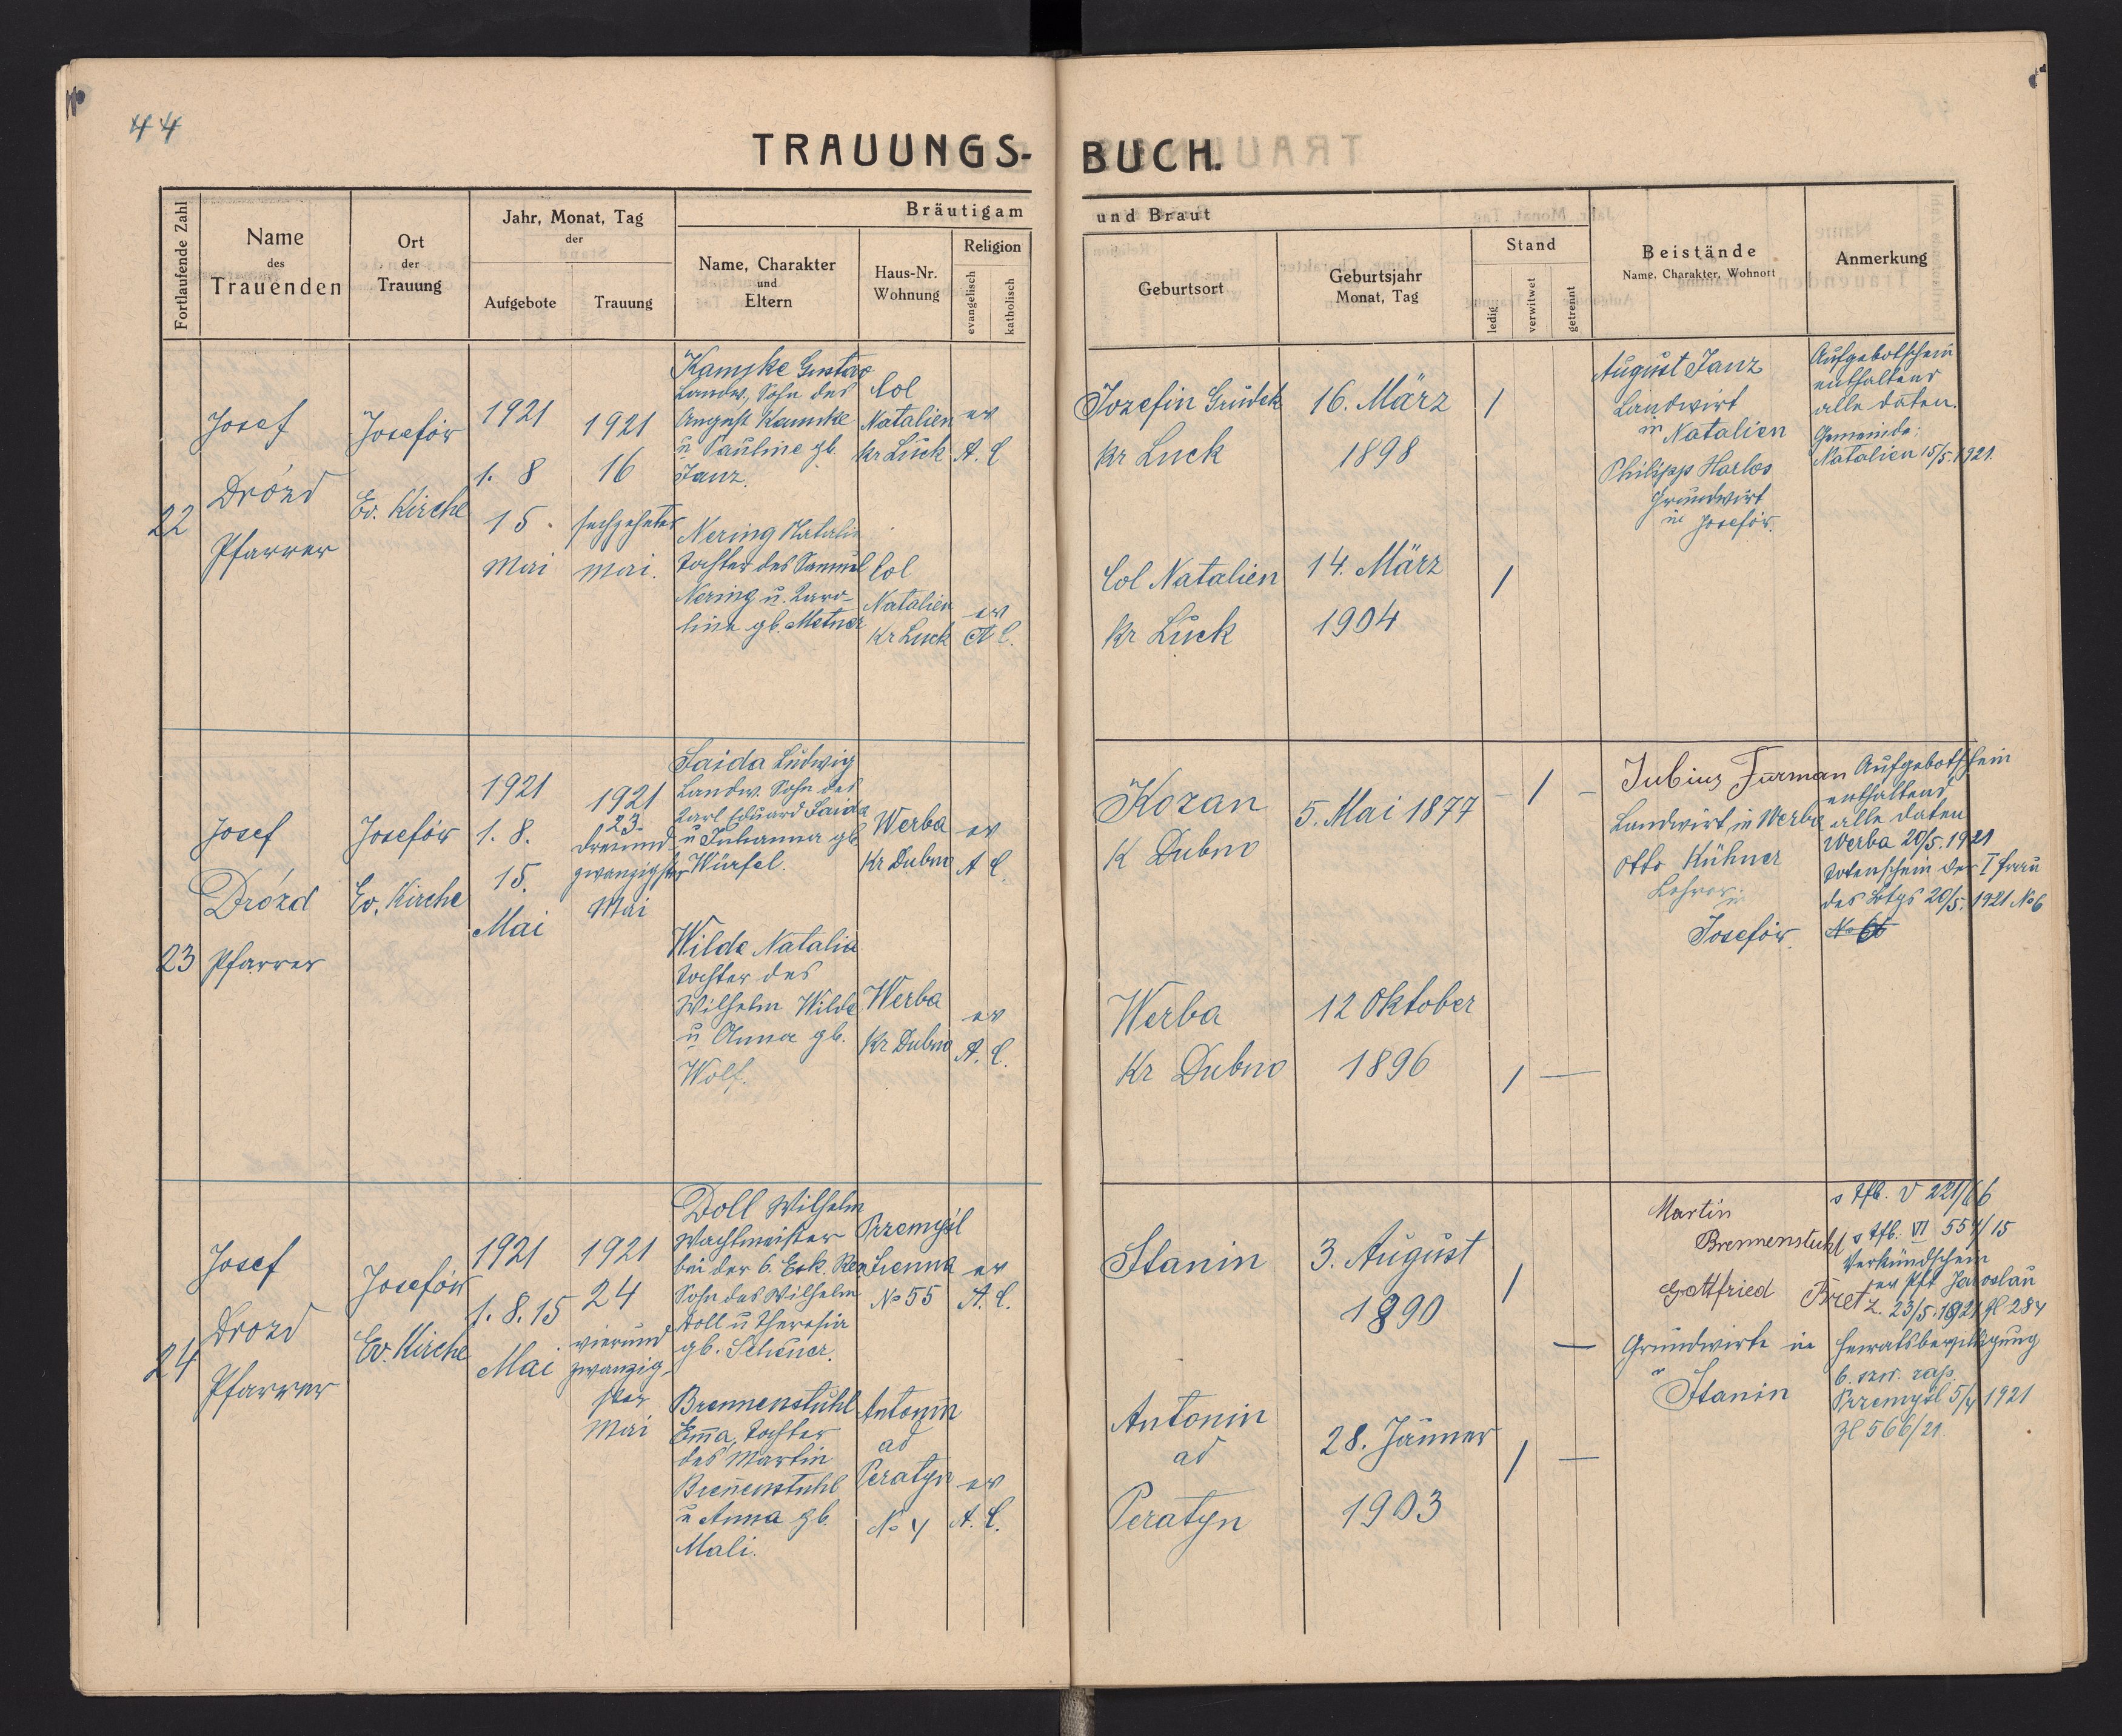 44
TRAUUNGS-BUCH.
Fortlaufende Zahl
Name des Trauenden
Ort der Trauung
Jahr, Monat, Tag der
Aufgebote
Trauung
Bräutigam und Braut
Name, Charakter und Eltern
Haus-Nr. Wohnung
Religion
evangelisch
katholisch
Geburtsort
Geburtsjahr Monat, Tag
Stand
ledig
verwitwet
getrennt
Beistände
Name, Charakter, Wohnort
Anmerkung
22
Josef
Drózd
Pfarrer
Josefów
Ev. Kirche
1921
1. 8
15.
Mai
1921
16
sechzehnter
Mai.
Kamske Gustav
Landw., Sohn des
August Kamske
u Pauline gb.
Janz.
Col
Natalien
Kr Luck
ev
A. C
Nering Natalie
Tochter des Samuel
Nering u. Karo-
line gb. Metner
Col
Natalien
Kr Luck
ev
A C.
Jozefin Grudek
Kr Luck
16. März
1898
/
Col Natalien
Kr Luck
14. März
1904
/
August Janz
Landwirt
in Natalien
Philipp Harlos
Grundwirt
in Josefów.
Aufgebotschein
enthaltend
alle Daten.
Gemeinde:
Natalien 15/5.1921.
23
Josef
Drózd
Pfarrer
Josefów
Ev. Kirche
1921
1. 8.
15.
Mai
1921
23.
dreiund-
zwanzigster
Mai
Saida Ludwig
Landw. Sohn des
Karl Eduard Saida
u Julianna gb
Würfel.
Werba
Kr Dubno
ev
A C.
Wilde Natalia
Tochter des
Wilhelm Wilde
u Anna gb.
Wolf.
Werba
Kr Dubno
ev
A. C.
Kozan
K Dubno
5. Mai 1877
- / -
Werba
Kr Dubno
12 Oktober
1896
/ —
Julius Furman
Landwirt in Werba
Otto Kühner
Lehrer
in
Josefów.
Aufgebotschein
enthaltend
alle Daten
Werba 20/5.1921
Totenschein der I Frau
des Btgs 20/5. 1921 No 6
24
Josef
Drozd
Pfarrer
Josefów
Ev. Kirche
1921
1. 8. 15
Mai
1921
24
vierund
zwanzig-
ster
Mai
Doll Wilhelm
Wachtmeister
bei der 6. Esk.
Sohn des Wilhelm
Doll u Theresia
gb. Scheuer.
Przemyśl
Sienna
No 55
ev
A. C.
Brennenstuhl
Em̄a, Tochter
des Martin
Bren̄enstuhl
u Anna gb.
Mali.
Antonin
ad
Peratyn
No 4
ev
A. C.
Stanin
3. August
1890
/
—
Antonin
ad
Peratyn
28. Jänner
1903
/ —
Martin
Brennenstuhl
Gottfried Fretz.
Grundwirte in
Stanin
s Tfb. V 221/66
s Tfb. VI 554/15
Verkündschein
ev Pft Jaroslau
23/5.1921 Zl 284
Heiratsbewilligung
6. szw. zap.
Przemyśl 5/4 1921
Zl 566/21.